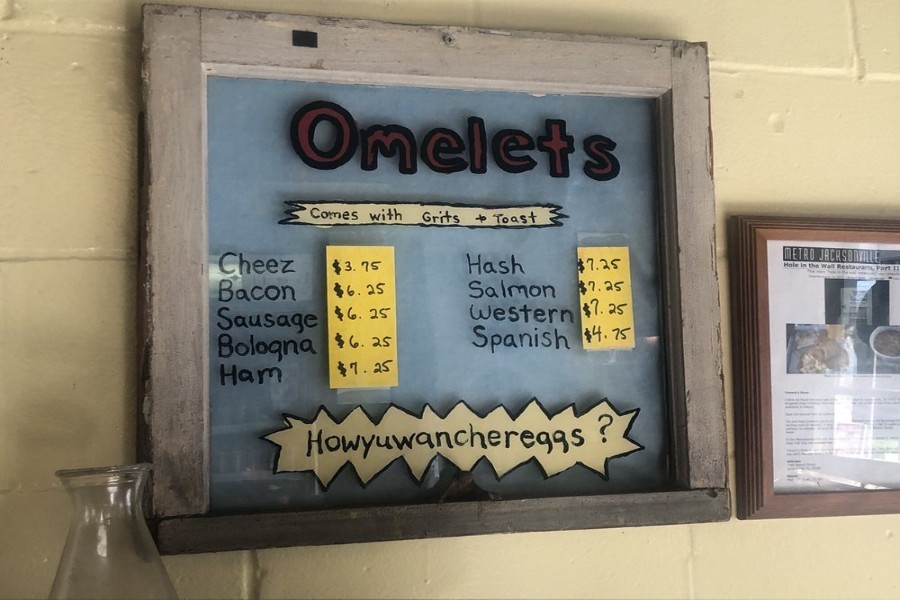 Omelets
Comes with Grits + Toast
Cheez $3.75
Bacon $6.25
Sausage $6.25
Bologna $6.25
Ham $7.25
Hash $7.25
Salmon $7.25
Western $7.25
Spanish $4.75
Howyuwanchereggs?
METRO JACKSONVILLE
Hole in the Wall Restaurants, Part II